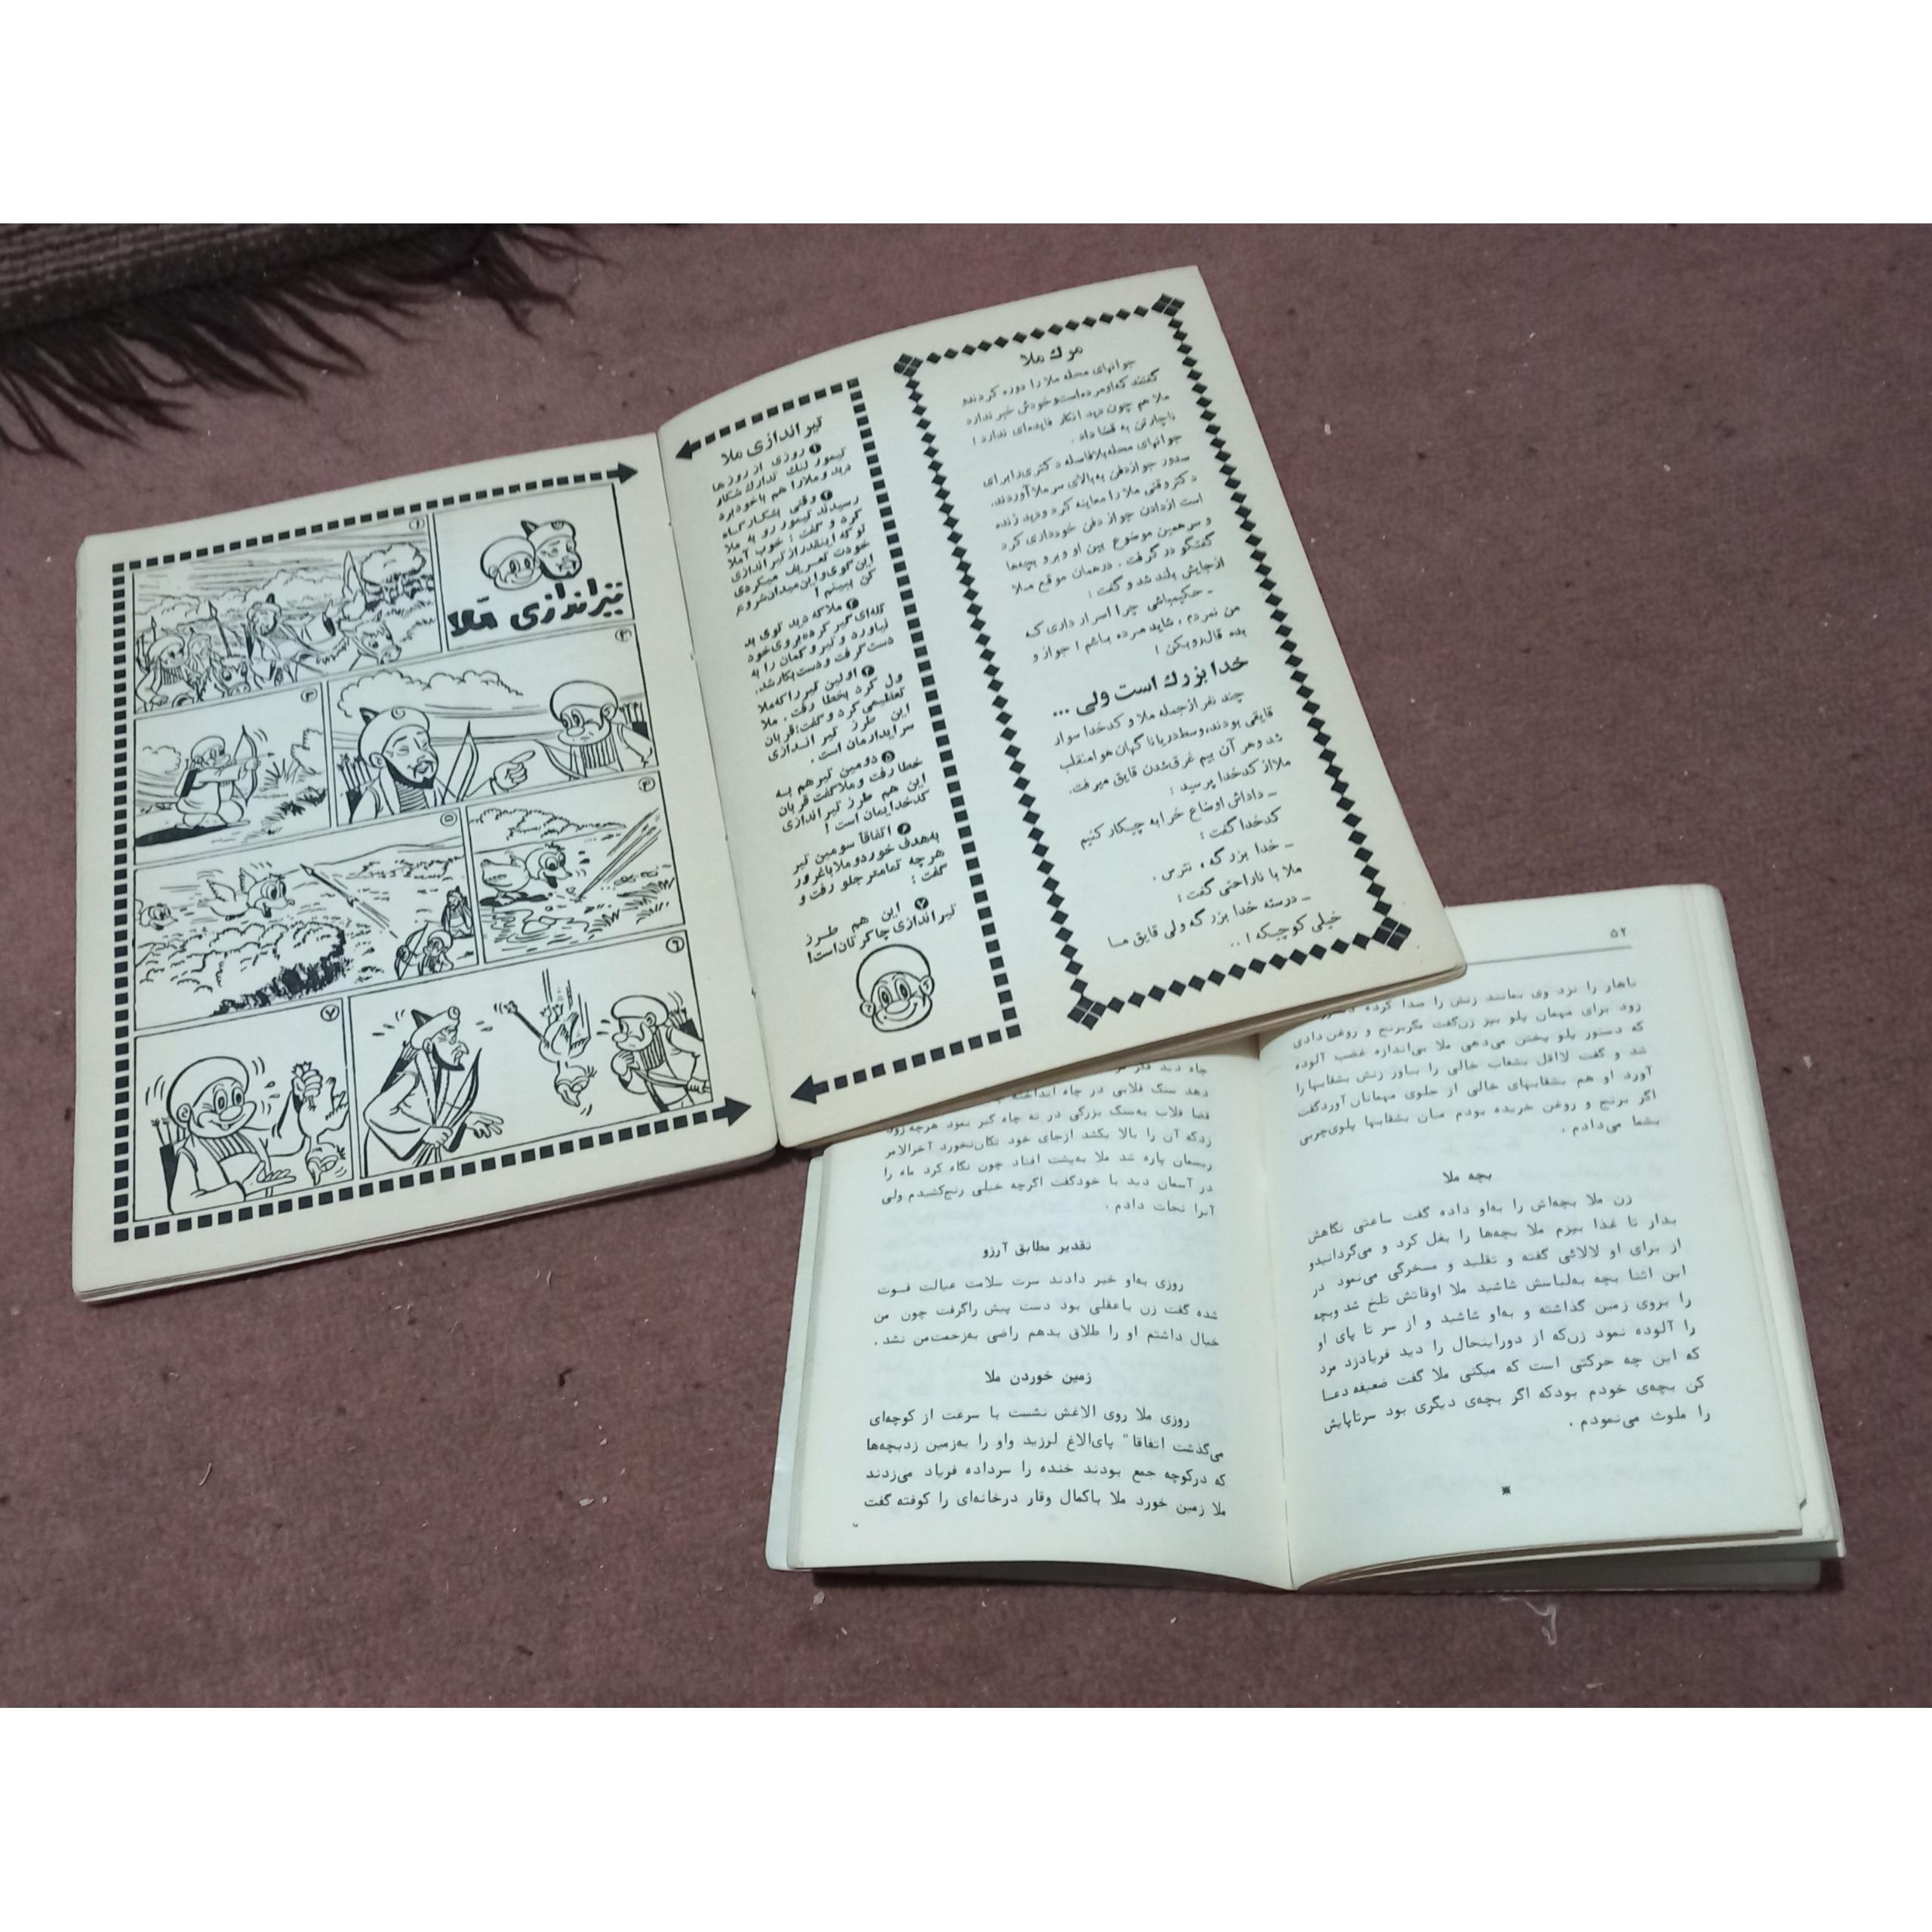 مرگ ملا
جوانهای محله ملا را دوره کردندو
گفتند که‌اومرده‌است‌وخودش خبر ندارد
ملا هم چون دید انکار فایده‌ای ندارد؛
ناچارتن به قضا داد.
جوانهای محله‌بلافاصله دکتری‌رابرای
ـدور جوازدفن به‌بالای سر ملا آوردند.
دکتروقتی ملا را معاینه کرد ودید زنده
است ازدادن جواز دفن خودداری کرد
و سرهمین موضوع بین او و برو بچه‌ها
گفتگو در گرفت. درهمان موقع ملا
ازجایش بلند شد و گفت:
ـ حکیمباشی چرا اسرار داری که
من نمردم، شاید مرده باشم! جواز و
بده قال‌روبکن!
خدا بزرگ است ولی ...
چند نفر ازجمله ملا و کدخدا سوار
قایقی بودند، وسط‌دریا ناگهان هوامنقلب
شد وهر آن بیم غرق‌شدن قایق میرفت.
ملااز کدخدا پرسید:
ـ داداش اوضاع خرابه چیکار کنیم
کدخدا گفت:
ـ خدا بزرگه، نترس.
ملا با ناراحتی گفت:
ـ درسته خدا بزرگه ولی قایق مسا
خیلی کوچیکه!..
تیر اندازی ملا
۱ روزی از روزها
تیمور لنگ تدارک شکار
دید و ملارا هم باخودبرد
۲ وقتی بشکارگاه
رسیدند تیمور رو به ملا
کرد و گفت: خوب آملا
توکه اینقدر از تیراندازی
خودت تعریف میکردی
این‌گوی‌واین‌میدان‌شروع
کن ببینم!
۳ ملاکه دید توی بد
تله‌ای‌گیر کرده‌بروی‌خود
نیاورد و تیر و کمان را به
دست گرفت و دست‌بکارشد.
۴ اولین تیر راکه‌ملا
ول کرد بخطا رفت. ملا
تعظیمی کرد وگفت:قربان
این طرز تیر اندازی
سرایدارمان است.
۵ دومین تیر هم به
خطا رفت و ملاگفت قربان
این هم طرز تیر اندازی
کدخدایمان است!
۶ اتفاقا سومین تیر
به‌هدف خوردو ملاباغرور
هرچه تمامتر جلو رفت و
گفت:
۷ این هم طرز
تیراندازی چاکرتان‌است!
تیراندازی ملا
۱
۲
۳
۴
۵
۶
۷
۵۲
ناهار را نزد وی بمانند زنش را صدا کرده
رود برای مهمان پلو بپز زن‌گفت مگربرنج و روغن دادی
که دستور پلو پختن می‌دهی ملا بی‌اندازه غضب آلوده
شد و گفت لااقل بشقاب خالی را بیاور زنش بشقابها را
آورد او هم بشقابهای خالی از جلوی مهمانان آوردگفت
اگر برنج و روغن خریده بودم میان بشقابها پلوی‌چربی
بشما می‌دادم.
بچه ملا
زن ملا بچه‌اش را به‌او داده گفت ساعتی نگاهش
بدار تا غذا بپزم ملا بچه‌ها را بغل کرد و می‌گردانیدو
از برای او لالائی گفته و تقلید و مسخرگی می‌نمود در
این اثنا بچه به‌لباسش شاشید ملا اوقاتش تلخ شد وبچه
را بروی زمین گذاشته و به‌او شاشید و از سر تا پای او
را آلوده نمود زن‌که از دوراینحال را دید فریادزد مرد
که این چه حرکتی است که میکنی ملا گفت ضعیفه دعـا
کن بچه‌ی خودم بودکه اگر بچه‌ی دیگری بود سرتاپایش
را ملوث می‌نمودم.
چاه دید
دهد سنگ قلابی در چاه انداخته
قضا قلاب به‌سنگ بزرگی در ته چاه گیر نمود هرچه‌زور
زدکه آن را بالا بکشد ازجای خود تکان‌نخورد آخرالامر
ریسمان پاره شد ملا به‌پشت افتاد چون نگاه کرد ماه را
در آسمان دید با خودگفت اگرچه خیلی رنج‌کشیدم ولی
آنرا نجات دادم.
تقدیر مطابق آرزو
روزی به‌او خبر دادند سرت سلامت عیالت فوت
شده گفت زن باعقلی بود دست پیش راگرفت چون من
خیال داشتم او را طلاق بدهم راضی به‌زحمت‌من نشد.
زمین خوردن ملا
روزی ملا روی الاغش نشست با سرعت از کوچه‌ای
می‌گذشت اتفاقا" پای‌الاغ لرزید واو را به‌زمین زدبچه‌ها
که درکوچه جمع بودند خنده را سرداده فریاد می‌زدند
ملا زمین خورد ملا باکمال وقار درخانه‌ای را کوفته گفت